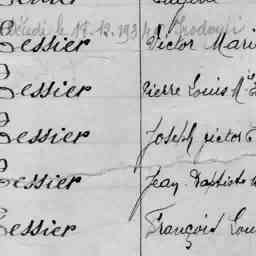 Eugène
Décédé le 17.12.193
Tessier Victor Mari
Tessier Pierre Louis M
Tessier Joseph Victor
Tessier Jean Baptiste
Tessier François Lou